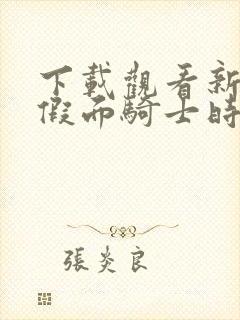 下載觀看新
假面騎士時
張炎良